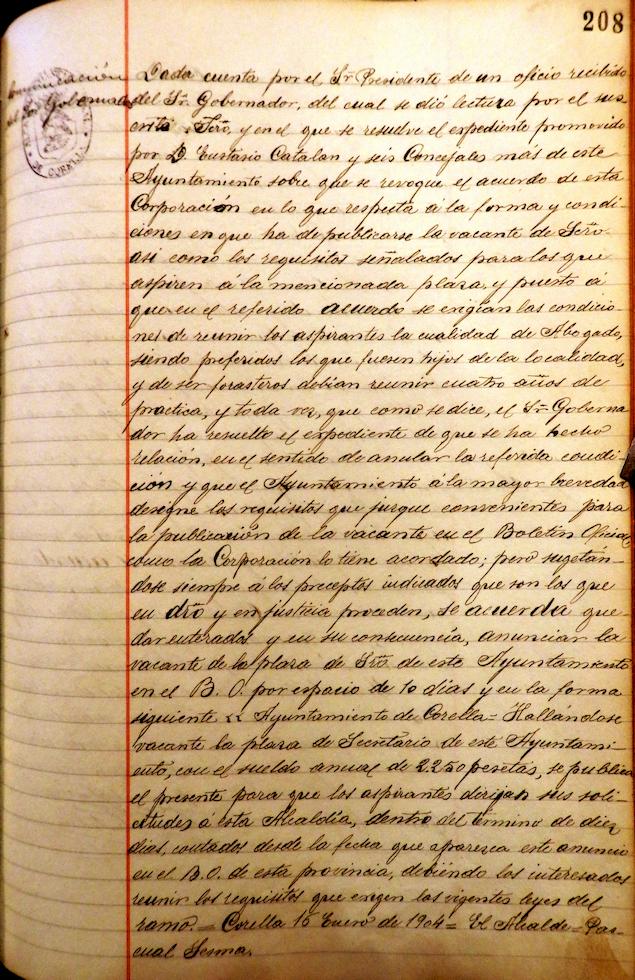 208
Comunicación
del Sr. Gobernador
Dada cuenta por el Sr. Presidente de un oficio recibido
del Sr. Gobernador, del cual se dió lectura por el sus-
crito Srio, y en el que se resuelve el expediente promovido
por D. Eustasio Catalan y seis Concejales más de este
Ayuntamiento sobre que se revoque el acuerdo de esta
Corporación en lo que respecta á la forma y condi-
ciones en que ha de publicarse la vacante de Srio.
asi como los requisitos señalados para los que
aspiren á la mencionada plaza, y puesto á
que en el referido acuerdo se exigian las condicio-
nes de reunir los aspirantes la cualidad de Abogado,
siendo preferidos los que fuesen hijos de la localidad,
y de ser forasteros debian reunir cuatro años de
practica, y toda vez, que como se dice, el Sr. Goberna
dor ha resuelto el expediente de que se ha hecho
relación, en el sentido de anular la referida condi-
ción y que el Ayuntamiento á la mayor brevedad
designe los requisitos que juzgue convenientes para
la publicación de la vacante en el Boletin Oficial
como la Corporación lo tiene acordado; pero sugetán-
dose siempre á los preceptos indicados que son los que
en dro y en justicia proceden, se acuerda que-
dar enterados y en su consecuencia, anunciar la
vacante de la plaza de Srio. de este Ayuntamiento
en el B. O. por espacio de 10 dias y en la forma
siguiente " Ayuntamiento de Corella = Hallándose
vacante la plaza de Secretario de este Ayuntami-
ento, con el sueldo anual de 2250 pesetas, se publica
el presente para que los aspirantes dirijan sus soli-
citudes á esta Alcaldia, dentro del término de diez
dias, contados desde la fecha que aparezca este anuncio
en el B.O. de esta provincia, debiendo los interesados
reunir los requisitos que exigen las vigentes leyes del
ramo. = Corella 15 Enero de 1904 = El Alcalde = Pas-
cual Sesma.